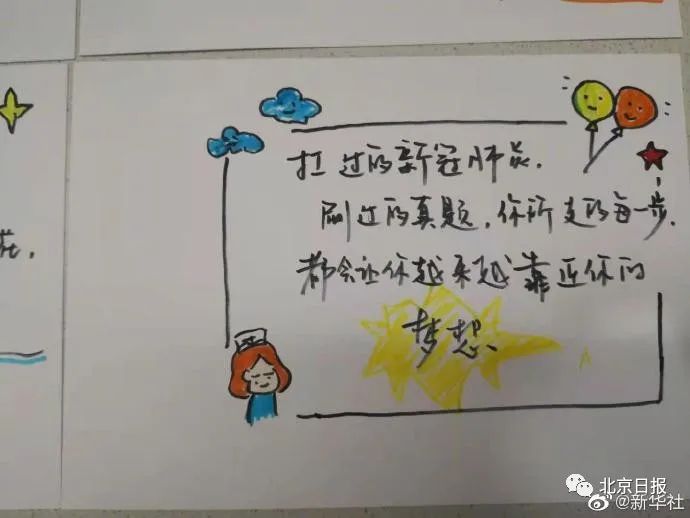 扛过的新冠肺炎，
刷过的真题，你所走的每一步，
都会让你越来越靠近你的
梦想、
北京日报
@新华社